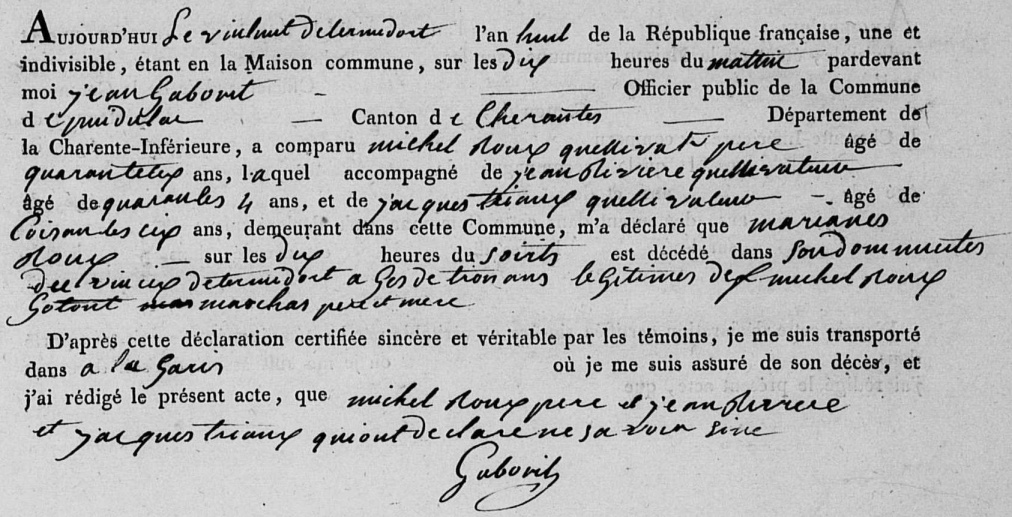 AUJOURD'HUI Le vinthuit determidort l'an huit de la République française, une et
indivisible, étant en la Maison commune, sur les dix heures du mattin pardevant
moi jean Gaborit — Officier public de la Commune
d — Canton de Cherantes — Département de
la Charente-Inférieure, a comparu michel Roux quellivateur pere âgé de
quarantesix ans, laquel accompagné de jean Riviere quellivateur
âgé de quarantes 4 ans, et de jacques triaux quellivateur — âgé de
soisantes cix ans, demeurant dans cette Commune, m'a déclaré que marianes
Roux — sur les dix heures du soirts est décédé dans son dommicites
determidort a Ges de trois ans legitimes de michel Roux
Gotont marchas pere et mere
D'après cette déclaration certifiée sincère et véritable par les témoins, je me suis transporté
dans a la où je me suis assuré de son décès, et
j'ai rédigé le présent acte, que michel Roux pere et jean Riviere
et jacques triaux qui ont declare ne savoir sine
Gaborit